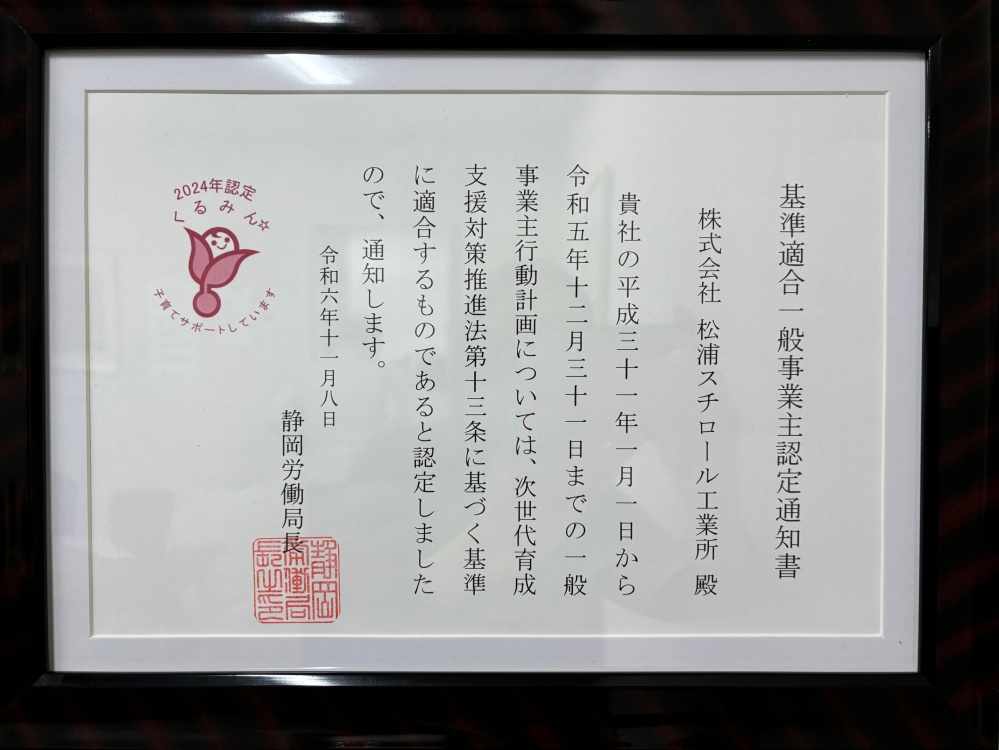 基準適合一般事業主認定通知書
株式会社 松浦スチロール工業所 殿
貴社の平成三十一年一月一日から
令和五年十二月三十一日までの一般
事業主行動計画については、次世代育成
支援対策推進法第十三条に基づく基準
に適合するものであると認定しました
ので、通知します。
令和六年十一月八日
静岡労働局長
静岡
労働局
長之印
2024年認定
くるみん☆
子育てサポートしています